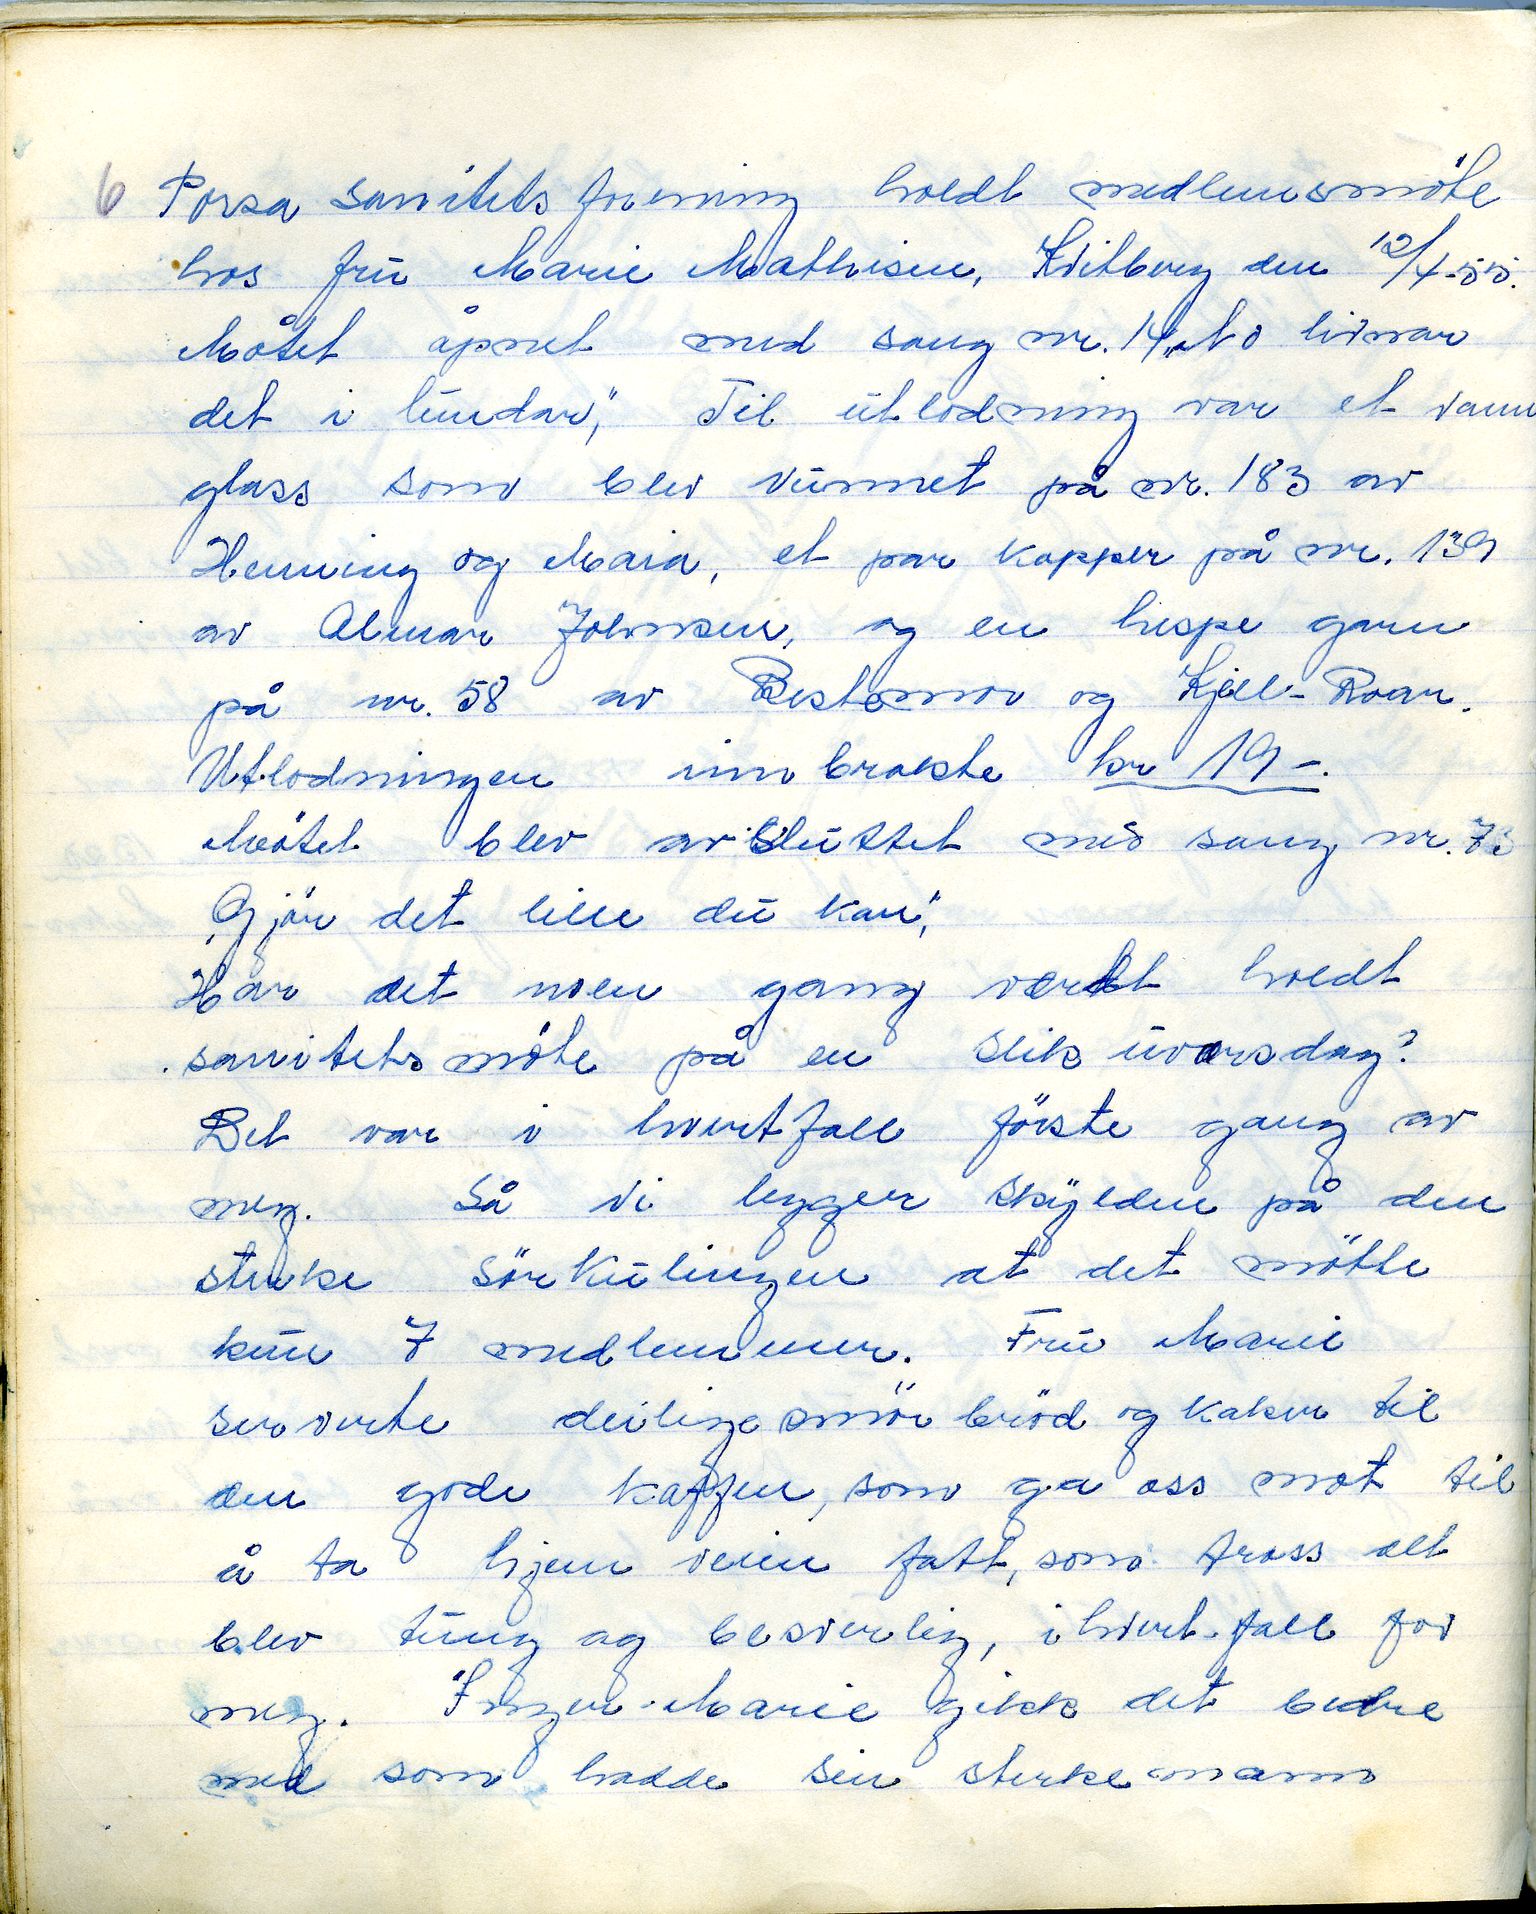 6 Porsa sanitetsforening holdt medlemsmöte
hos fru Marie Mathisen, Kvitberg den 12/4-55.
Møtet åpnet med sang nr. 14 „No livnar
det i lundar”, Til utlodning var et vann
glass som blev vunnet på nr. 183 av
Henning og Maia, et par kopper på nr. 139
av Almar Johnsen, og en hespe garn
på nr. 58 av Bestemor og Kjell-Roar.
Utlodningen innbrakte kr 19-.
Mötet blev avsluttet med sang nr.
„Gjör det lille du kan”,
Har det noen gang vært holdt
sanitetsmöte på en slik uværsdag?
Det var i hvertfall förste gang av
meg. Så vi legger skylden på den
sterke sörkulingen at det mötte
kun 7 medlemmer. Fru Marie
serverte deilige smörbröd og kaker til
den gode kaffen, som ga oss mot til
å ta hjem veien fatt, som tross alt
blev tung og besverlig, i hvert fall for
meg. Inger-Marie gikk det bedre
med som hadde sin sterke mann